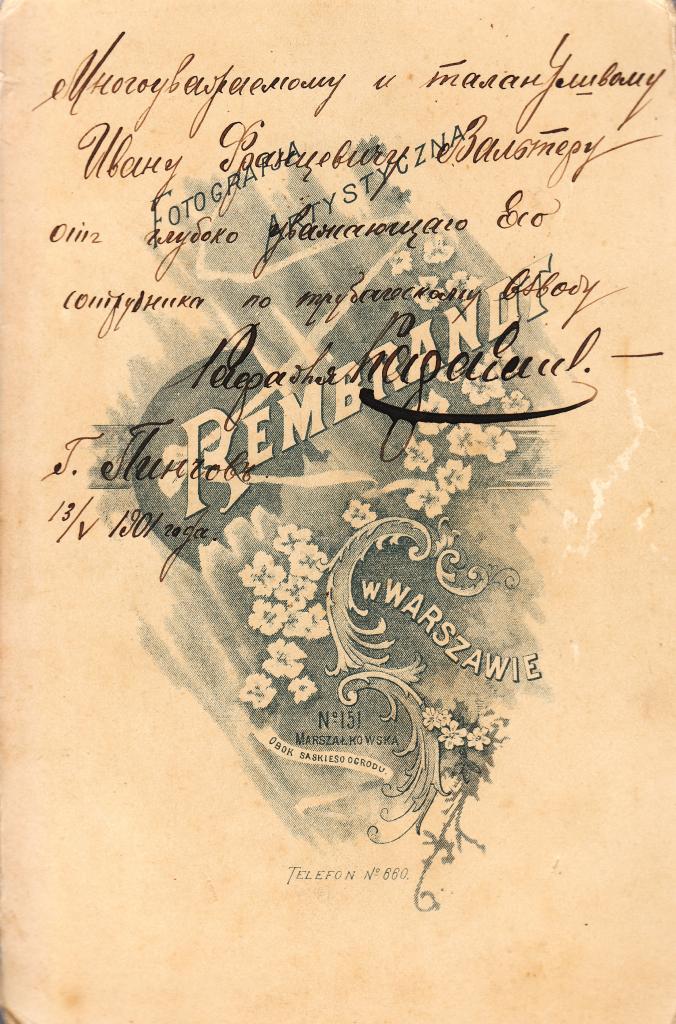 Многоуважаемому и талантливому
Ивану Францевичу Вальтеру
отъ глубоко уважающаго Его
сотрудника по трубаческому взводу
Рафаила
г. Пинчовъ.
13/V 1901 года.
FOTOGRAFJA
ARTYSTYCZNA
REMBRANDT
w WARSZAWIE
No 151
MARSZAŁKOWSKA
OBOK SASKIEGO OGRODU.
TELEFON No 660.